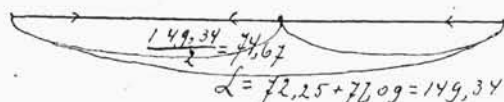 149,34
2 = 74,67
L = 72,25 + 77,09 = 149,34